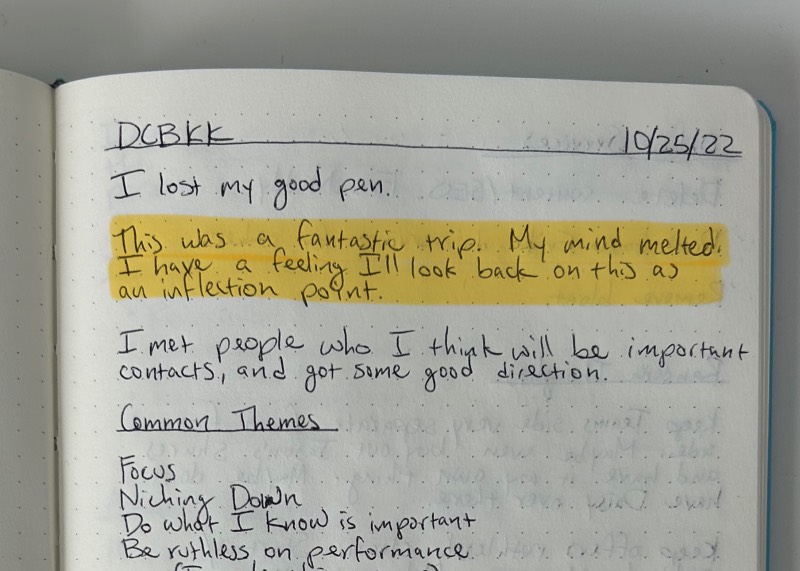 DCBKK 10/25/22
I lost my good pen.
This was a fantastic trip. My mind melted.
I have a feeling I'll look back on this as
an inflection point.
I met people who I think will be important
contacts, and got some good direction.
Common Themes
Focus
Niching Down
Do what I know is important
Be ruthless on performance